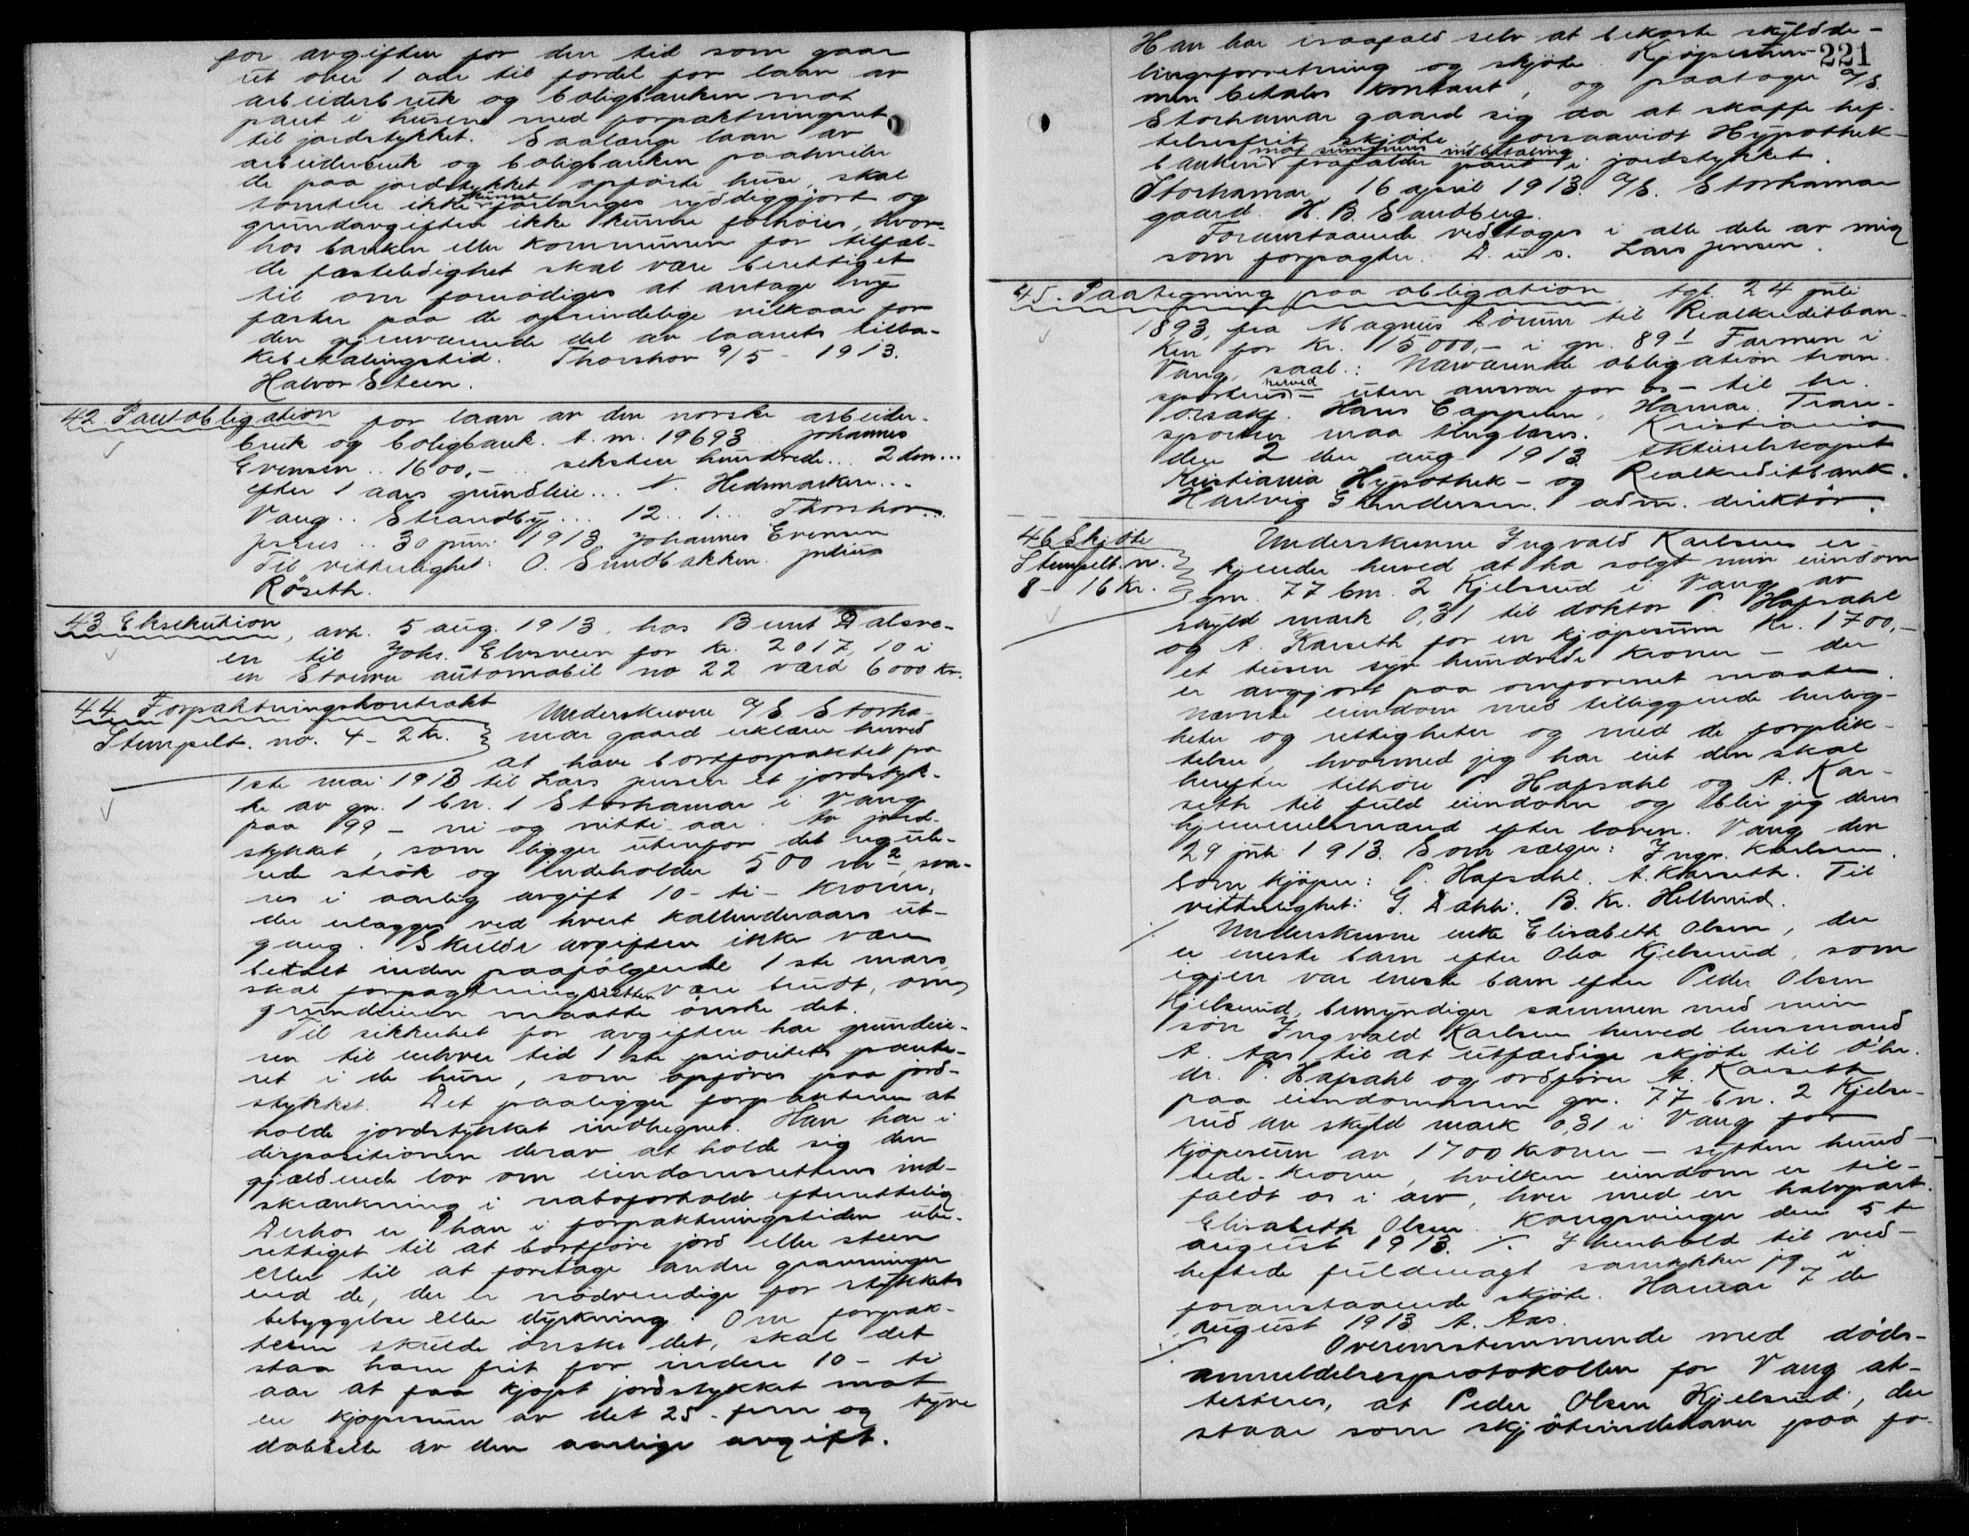 for avgiften for den tid som gaar
ut over 1 aar til fordel for laan av
arbeiderbruk og boligbanken mot
pant i husene med forpaktningsret
til jordstykket. Saalænge laan av
arbeiderbruk og boligbanken paahviler
de paa jordstykket opførte huse, skal
tomten ikke kunne forlanges ryddiggjort og
grundavgiften ikke kunne forhøies, hvor-
hos banken eller kommunen for tilfæl-
de fæsteledighet skal være berettiget
til om fornødiges at antage ny
fæster paa de oprindelige vilkaar for
den gjenværende del av laanets tilba-
kebetalingstid. Thorshov 9/5 - 1913.
Halvor Steen.
42 Pantobligation for laan av den norske arbeider-
bruk og boligbank. A. nr. 19693 .. Johannes
Evensen .. 1600,- .. seksten hundrede... 2 den...
efter 1 aars grundleie... N. Hedemarken...
Vang.. Strandby... 12.. 1... Thorshov...
.. 30 juni 1913 Johannes Evensen
Til vitterlighet: O. Sundbakken. Julius
Røseth.
43 Eksekution, avh. 5 aug. 1913. hos Bernt Dalsve-
en til Johs. Elvsveen for kr. 2017,10 i
en Stoewer automobil no 22 værd 6000 kr.
44 Forpaktningskontrakt
Stempelt. no. 4 - 2 kr.
Underskrevne A/S Storha-
mar gaard erklærer herved
at have bortforpaktet fra
1ste mai 1913 til Lars Jensen et jordstyk-
ke av gn. 1 bn. 1 Storhamar i Vang
paa 99 - ni og nitti aar. Av jord-
stykket, som ligger utenfor det regule-
rede strøk og indeholder 500 m², sva-
res i aarlig avgift 10 - ti - kroner,
der erlægges ved hvert kallenderaars ut-
gang. Skulde avgiften ikke være
betalt inden paafølgende 1ste mars
skal forpagtningsretten være brudt, om
grundeieren maatte ønske det.
Til sikkerhet for avgiften har grundeie-
ren til enhver tid 1ste prioritets pante-
ret i de huse, som opføres paa jord-
stykket. Det paaligger forpakteren at
holde jordstykket indhegnet. Han har i
dispositionen derav at holde sig den
gjældende lov om eiendomsrettens ind-
skrænkning i naboforhold efterrettelig
Derhos er han i forpaktningstiden ube-
rettiget til at bortføre jord eller steen
eller til at foretage andre gravninger
end de, der er nødvendige for stykkets
bebyggelse eller dyrkning. Om forpak-
teren skulde ønske det, skal det
staa ham frit for inden 10 - ti
aar at faa kjøpt jordstykket mot
en kjøpesum av det 25 - fem og tyve
dobbelte av den aarlige avgift.
221
Han har isaafald selv at bekoste skyldde-
lingsforretning og skjøte. Kjøpesum-
men betales kontant, og paatager A/S.
Storhamar gaard sig da at skaffe hef-
telsesfrit skjøte, forsaavidt Hypothek-
banken mot summens indbetaling frafalder pant i jordstykket.
Storhamar 16 april 1913. A/S. Storhamar
gaard. H. B. Sandberg.
Foranstaaende vedtages i alle dele av mig
som forpagter. D. u. s. Lars Jensen.
45. Paategning paa obligation tgl. 24 juli
1893, fra Magnus Dørum til Realkreditban-
ken for kr. 15000,- i gn. 89¹ Farmen i
Vang, saal.: Nærværende obligation tran-
sporteres herved - uten ansvar for os - til hr.
o.r.sakf. Hans Cappelen, Hamar. Tran-
sporten maa tinglæses. Kristiania
den 2 den aug 1913 Aktieselskapet
Kristiania Hypothek - og Realkreditbank.
Hartvig Gundersen. adm. direktør.
46 Skjøte
Stempelt. n.
8 - 16 kr.
Underskrevne Ingvald Karlsen er-
kjender herved at ha solgt min eiendom
gn. 77 bn. 2 Kjelsrud i Vang av
skyld mark 0,31 til doktor P. Hafsahl
og A. Karseth for en kjøpesum kr. 1700,-
et tusen syv hundrede kroner - der
er avgjort paa omforenet maate.
Nævnte eiendom med tilliggende herlig-
heter og rettigheter og med de forplik-
telser, hvormed jeg har eiet den skal
herefter tilhøre P. Hafsahl og A. Kar-
seth til fuld eiendom og blir jeg deres
hjemmelsmand efter loven. Vang den
29 juli 1913. Som sælger: Ingv. Karlsen.
Som kjøper: P. Hafsahl. A. Karseth. Til
vitterlighet: G. Dæhli. B. Kr. Hellerud.
Underskrevne enke Elisabeth Olsen, der
er eneste barn efter Olea Kjelsrud, som
igjen var eneste barn efter Peder Olsen
Kjelsrud, bemyndiger sammen med min
søn Ingvald Karlsen herved lensmand
A. Aas til at utfærdige skjøte til d'hr.
dr. P. Hafsahl og ordfører A. Karseth
paa eiendommen gn. 77 bn. 2 Kjels-
rud av skyld mark 0,31 i Vang for
kjøpesum av 1700 kroner - sytten hund-
rede kroner, hvilken eiendom er til-
faldt os i arv, hver med en halvpart.
Elisabeth Olsen. Kongsvinger den 5te
august 1913. ·/. I henhold til ved-
heftede fuldmagt samtykker jeg i
foranstaaende skjøte. Hamar 7 de
august 1913. A. Aas.
Overensstemmende med døds-
anmeldelsesprotokollen for Vang at-
testeres, at Peder Olsen Kjelsrud, der
staar som skjøteindehaver paa fo-